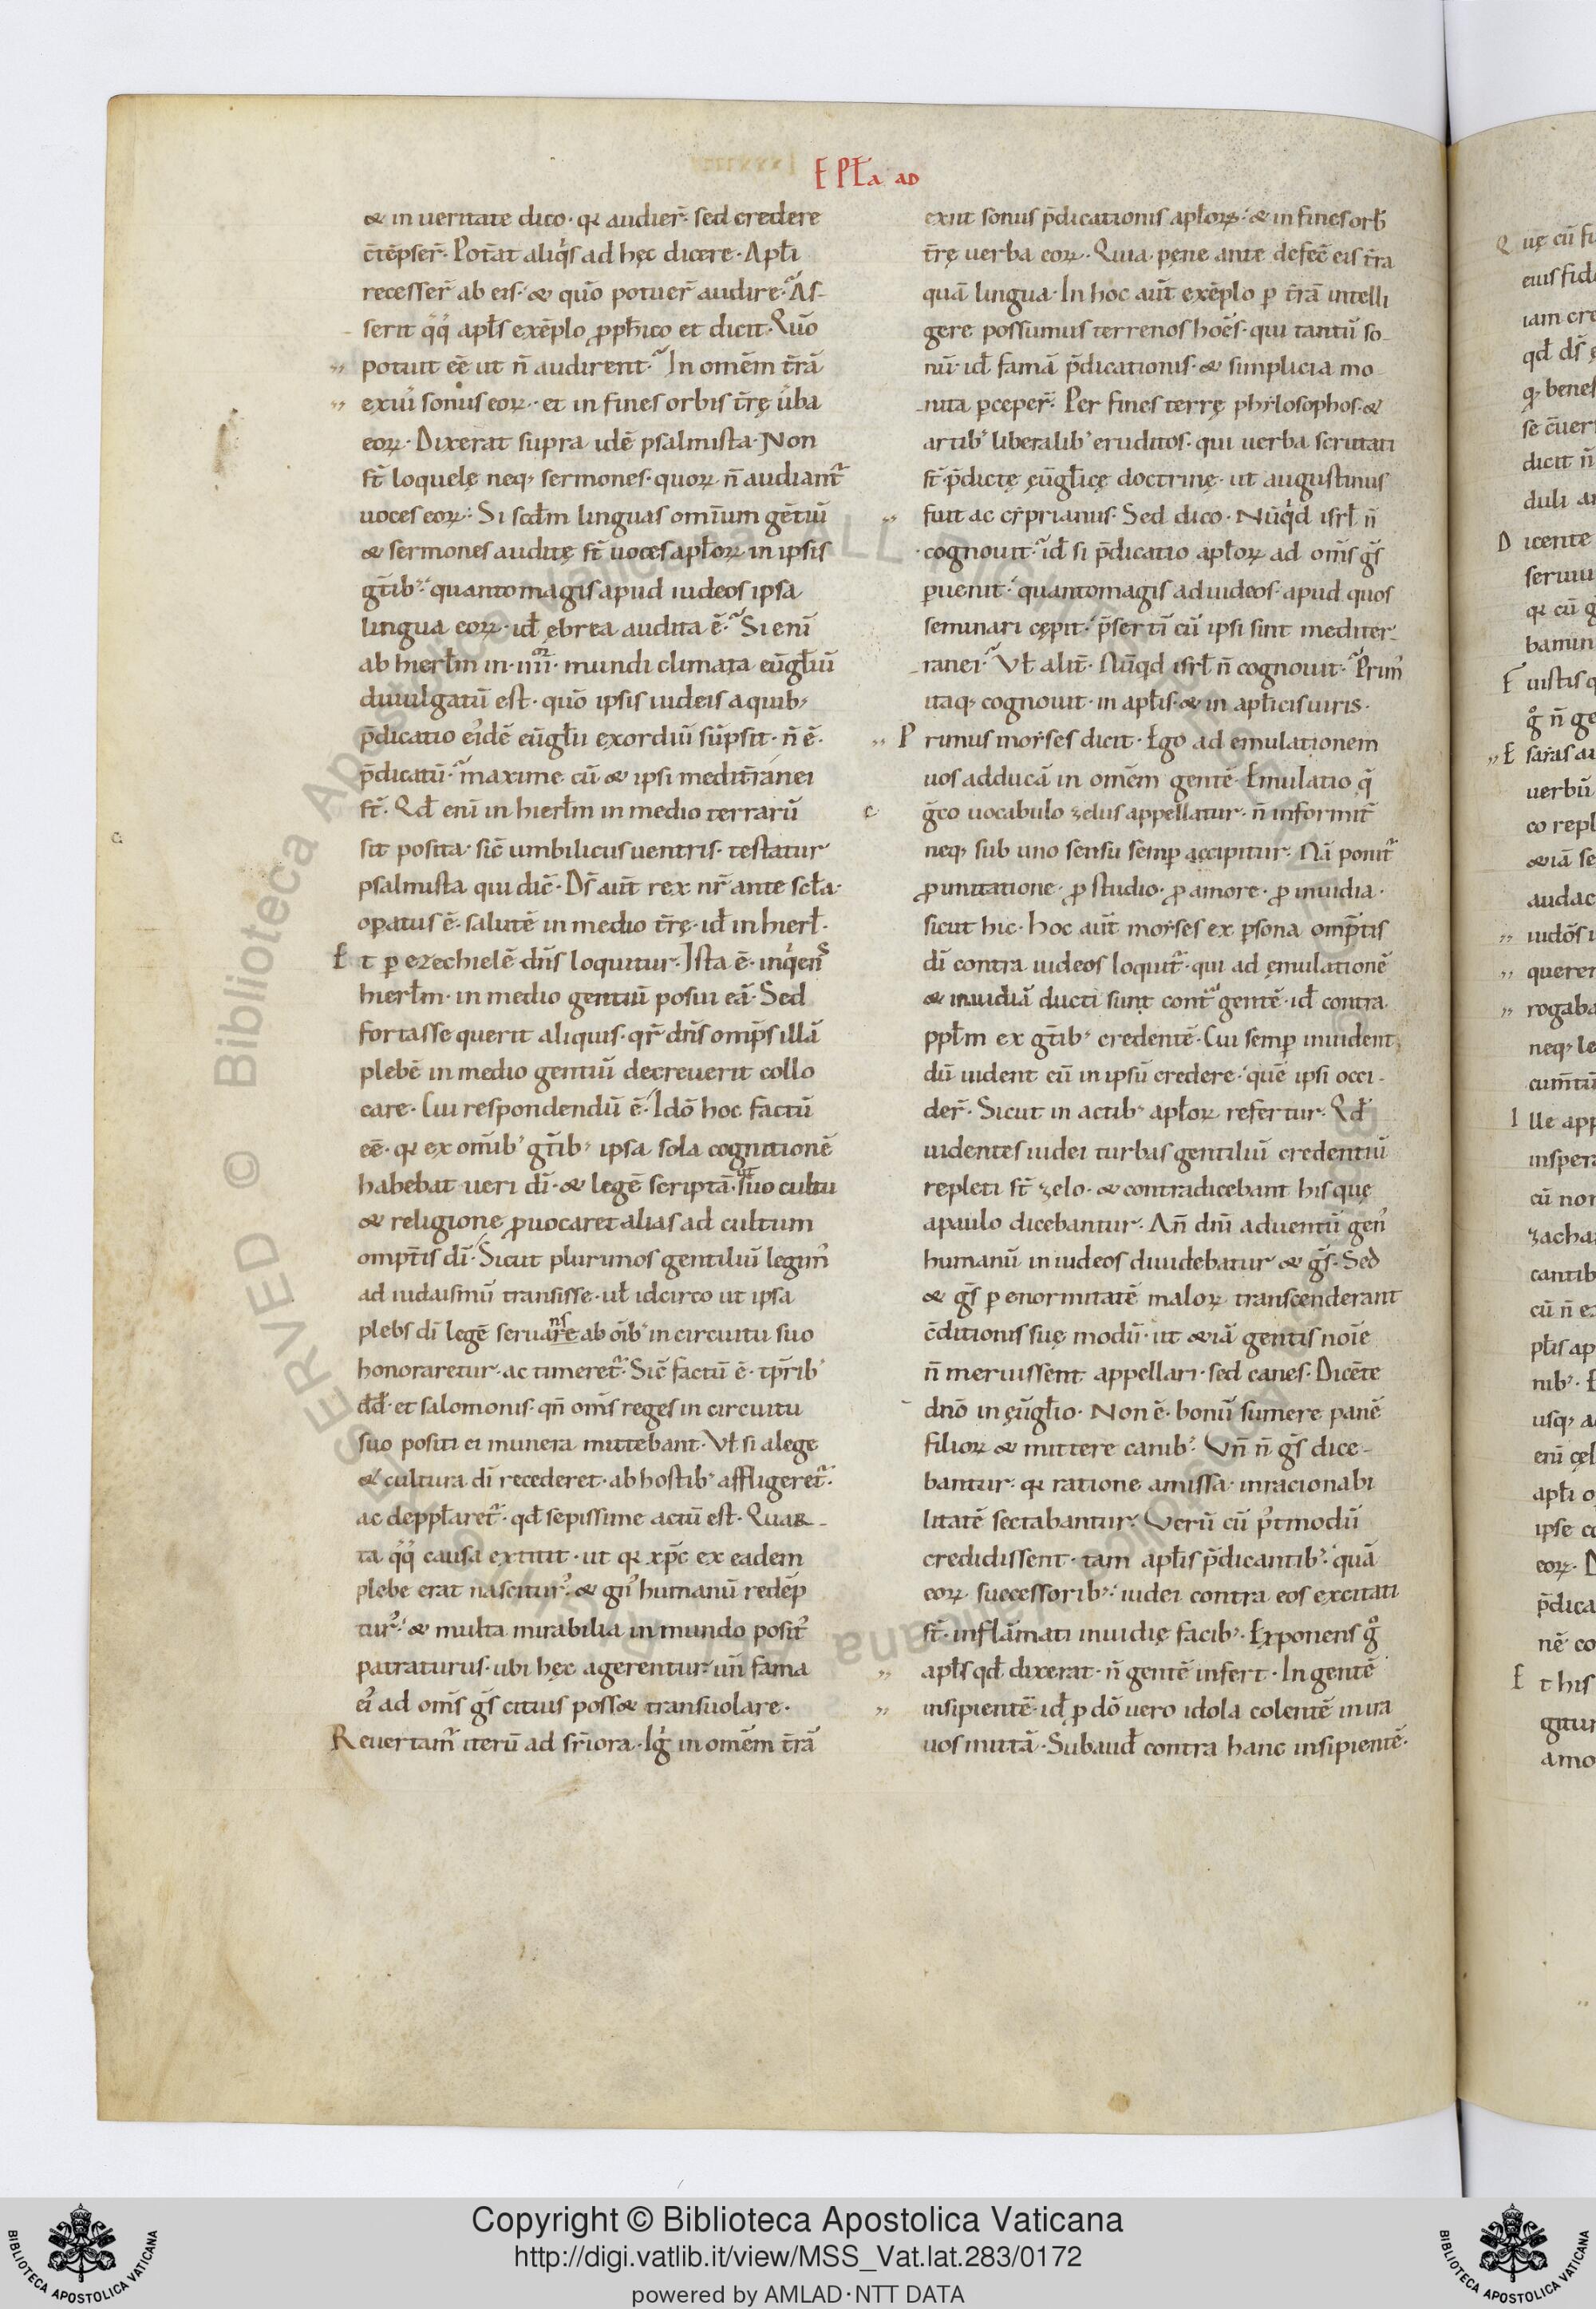 EPła ad
& in ueritate dico· qꝛ audier̄· sed credere
c̄tēpser̄· Pot̄at aliq̇s ad hęc dicere· Apłi
recesser̄ ab eis· & quō potuer̄ audire· As-
serit q̊q̊ apłs exēplo ꝓpħico et dicit· Quō
potuit eē ut n̄ audirent· In omēm t̄rā
exiui sonus eoꝝ· et in fines orbis t̄rę ūba
eoꝝ· Dixerat supra idē psalmista· Non
st̄ loquelę neq; sermones· quoꝝ n̄ audiant᷑
uoces eoꝝ· Si scdm linguas omīum gētiū
& sermones auditę st̄ uoces apłoꝝ in ipsis
gt̄ib;· quanto magis apud iudeos ipsa
lingua eoꝝ· id ębrea audita ē· Si enī
ab hierłm in· iiiior· mundi climata eūgłiū
diuulgatū est· quō ipsis iudeis a quib;
p̄dicatio ei᷒dē eūgłii exordiū sūpsit· n̄ ē·
p̄dicatū· maxime cū & ipsi medit̄ranei
st̄· Qd enī in hierłm in medio terrarū
sit posita· sic̄ umbilicus uentris· testatur
psalmista qui dic̄· Ds̄ aut̄ rex nr̄ ante scła·
opatus ē· salutē in medio t̄rę· id in hierł·
Et p ezechielē dn̄s loquitur· Ista ē· inq̇ens
hierłm· in medio gentiū posui eā· Sed
fortasse querit aliquis· qr̄ dn̄s omp̄s illā
plebē in medio gentiū decreuerit collo
care· Cui respondendū ē· Idō hoc factū
eē· qꝛ ex omīb; gt̄ib; ipsa sola cognitionē
habebat ueri dī· & legē scriptā· ut suo cultu
& religione ꝓuocaret alias ad cultum
ompt̄is dī· Sicut plurimos gentiliū legim᷒
ad iudaismū transisse· uł idcirco ut ipsa
plebs dī legē seruare ns ab oīb; in circuitu suo
honoraretur· ac timeret᷑· Sic̄ factū ē· tp̄rib;
dd̄· et salomonis· qn̄ oms̄ reges in circuitu
suo positi ei munera mittebant· Vł si a lege
& cultura dī recederet· ab hostib; affligeret᷑·
ac deppłaret᷑· qd sepissime actū est· Quar-
ta q̊q̊ causa extitit· ut qꝛ xp̄c ex eadem
plebe erat nascitur᷒· & gn᷒ humanū redēp
tur᷒· & multa mirabilia in mundo posit᷒
patraturus· ubi hęc agerentur· un̄ fama
ei᷒ ad oms̄ gs̄ citius poss& transuolare·
Reuertam᷒ iterū ad sr̄iora· Iġ in omēm t̄rā
exiit sonus p̄dicationis apłoꝝ· & in fines orb̄
t̄rę uerba eoꝝ· Quia pęne ante defec̄ eis t̄ra
quā lingua· In hoc aut̄ exēplo p t̄rā intelli
gere possumus terrenos hoēs· qui tantū so-
nū· id famā p̄dicationis· & simplicia mo
nita pceper̄· Per fines terrę phylosophos· &
artib; liberalib; eruditos· qui uerba scrutati
st̄· p̄dictę ęūgłicę doctrinę· ut augustinus
fuit ac cyprianus· Sed dico· Nūq̇d isrł n̄
cognouit· id si p̄dicatio apłoꝝ ad oms̄ gs̄
puenit· quanto magis ad iudeos· apud quos
seminari cępit· p̄sertī cū ipsi sint mediter-
ranei· Vł alit̄· Nūqd isrł n̄ cognouit· Prim᷒
itaq; cognouit· in apłis· & in apłicis uiris·
Primus moyses dicit· Ego ad emulationem
uos adducā in omēm gentē· Emulatio q̄
ḡco uocabulo zelus appellatur· n̄ informit̄
neq; sub uno sensu semp accipitur· Nā ponit᷑
ꝓ imitatione· ꝓ studio· ꝓ amore· ꝓ inuidia·
sicut hic· Hoc aut̄ moyses ex psona ompt̄is
dī contra iudeos loquit᷑· qui ad ęmulationē
& inuidiā ducti sunt contra gentē· id contra
ppłm ex gt̄ib; credentē· Cui semp inuident
dū uident eū in ipsū credere· quē ipsi occi-
der̄· Sicut in actib; apłoꝝ refertur· Qd
uidentes iudei turbas gentiliū credentiū
repleti st̄ zelo· & contradicebant his quę
a paulo dicebantur· An̄ dnī aduentū gen᷒
humanū in iudeos diuidebatur & gs̄· Sed
& gs̄ p enormitatē maloꝝ transcenderant
c̄ditionis suę modū· ut &iā gentis noīe
n̄ meruissent appellari· sed canes· Dicēte
dnō in ęūgłio· Non ē· bonū sumere panē
filioꝝ & mittere canib;· Vn̄ n̄ gs̄ dice-
bantur· qꝛ ratione amissa· inracionabi
litatē sectabantur· Verū cū p᷒tmodū
credidissent· tam apłis p̄dicantib;· quā
eoꝝ successorib;· iudei contra eos excitati
st̄· inflāmati inuidię facib;· Exponens g̊
apłs qd dixerat· n̄ gentē infert· In gentē
insipientē· id ꝓ dō uero idola colentē in ira
uos mittā· Subaud contra hanc insipientē·
Copyright © Biblioteca Apostolica Vaticana
http://digi.vatlib.it/view/MSS_Vat.lat.283/0172
powered by AMLAD·NTT DATA